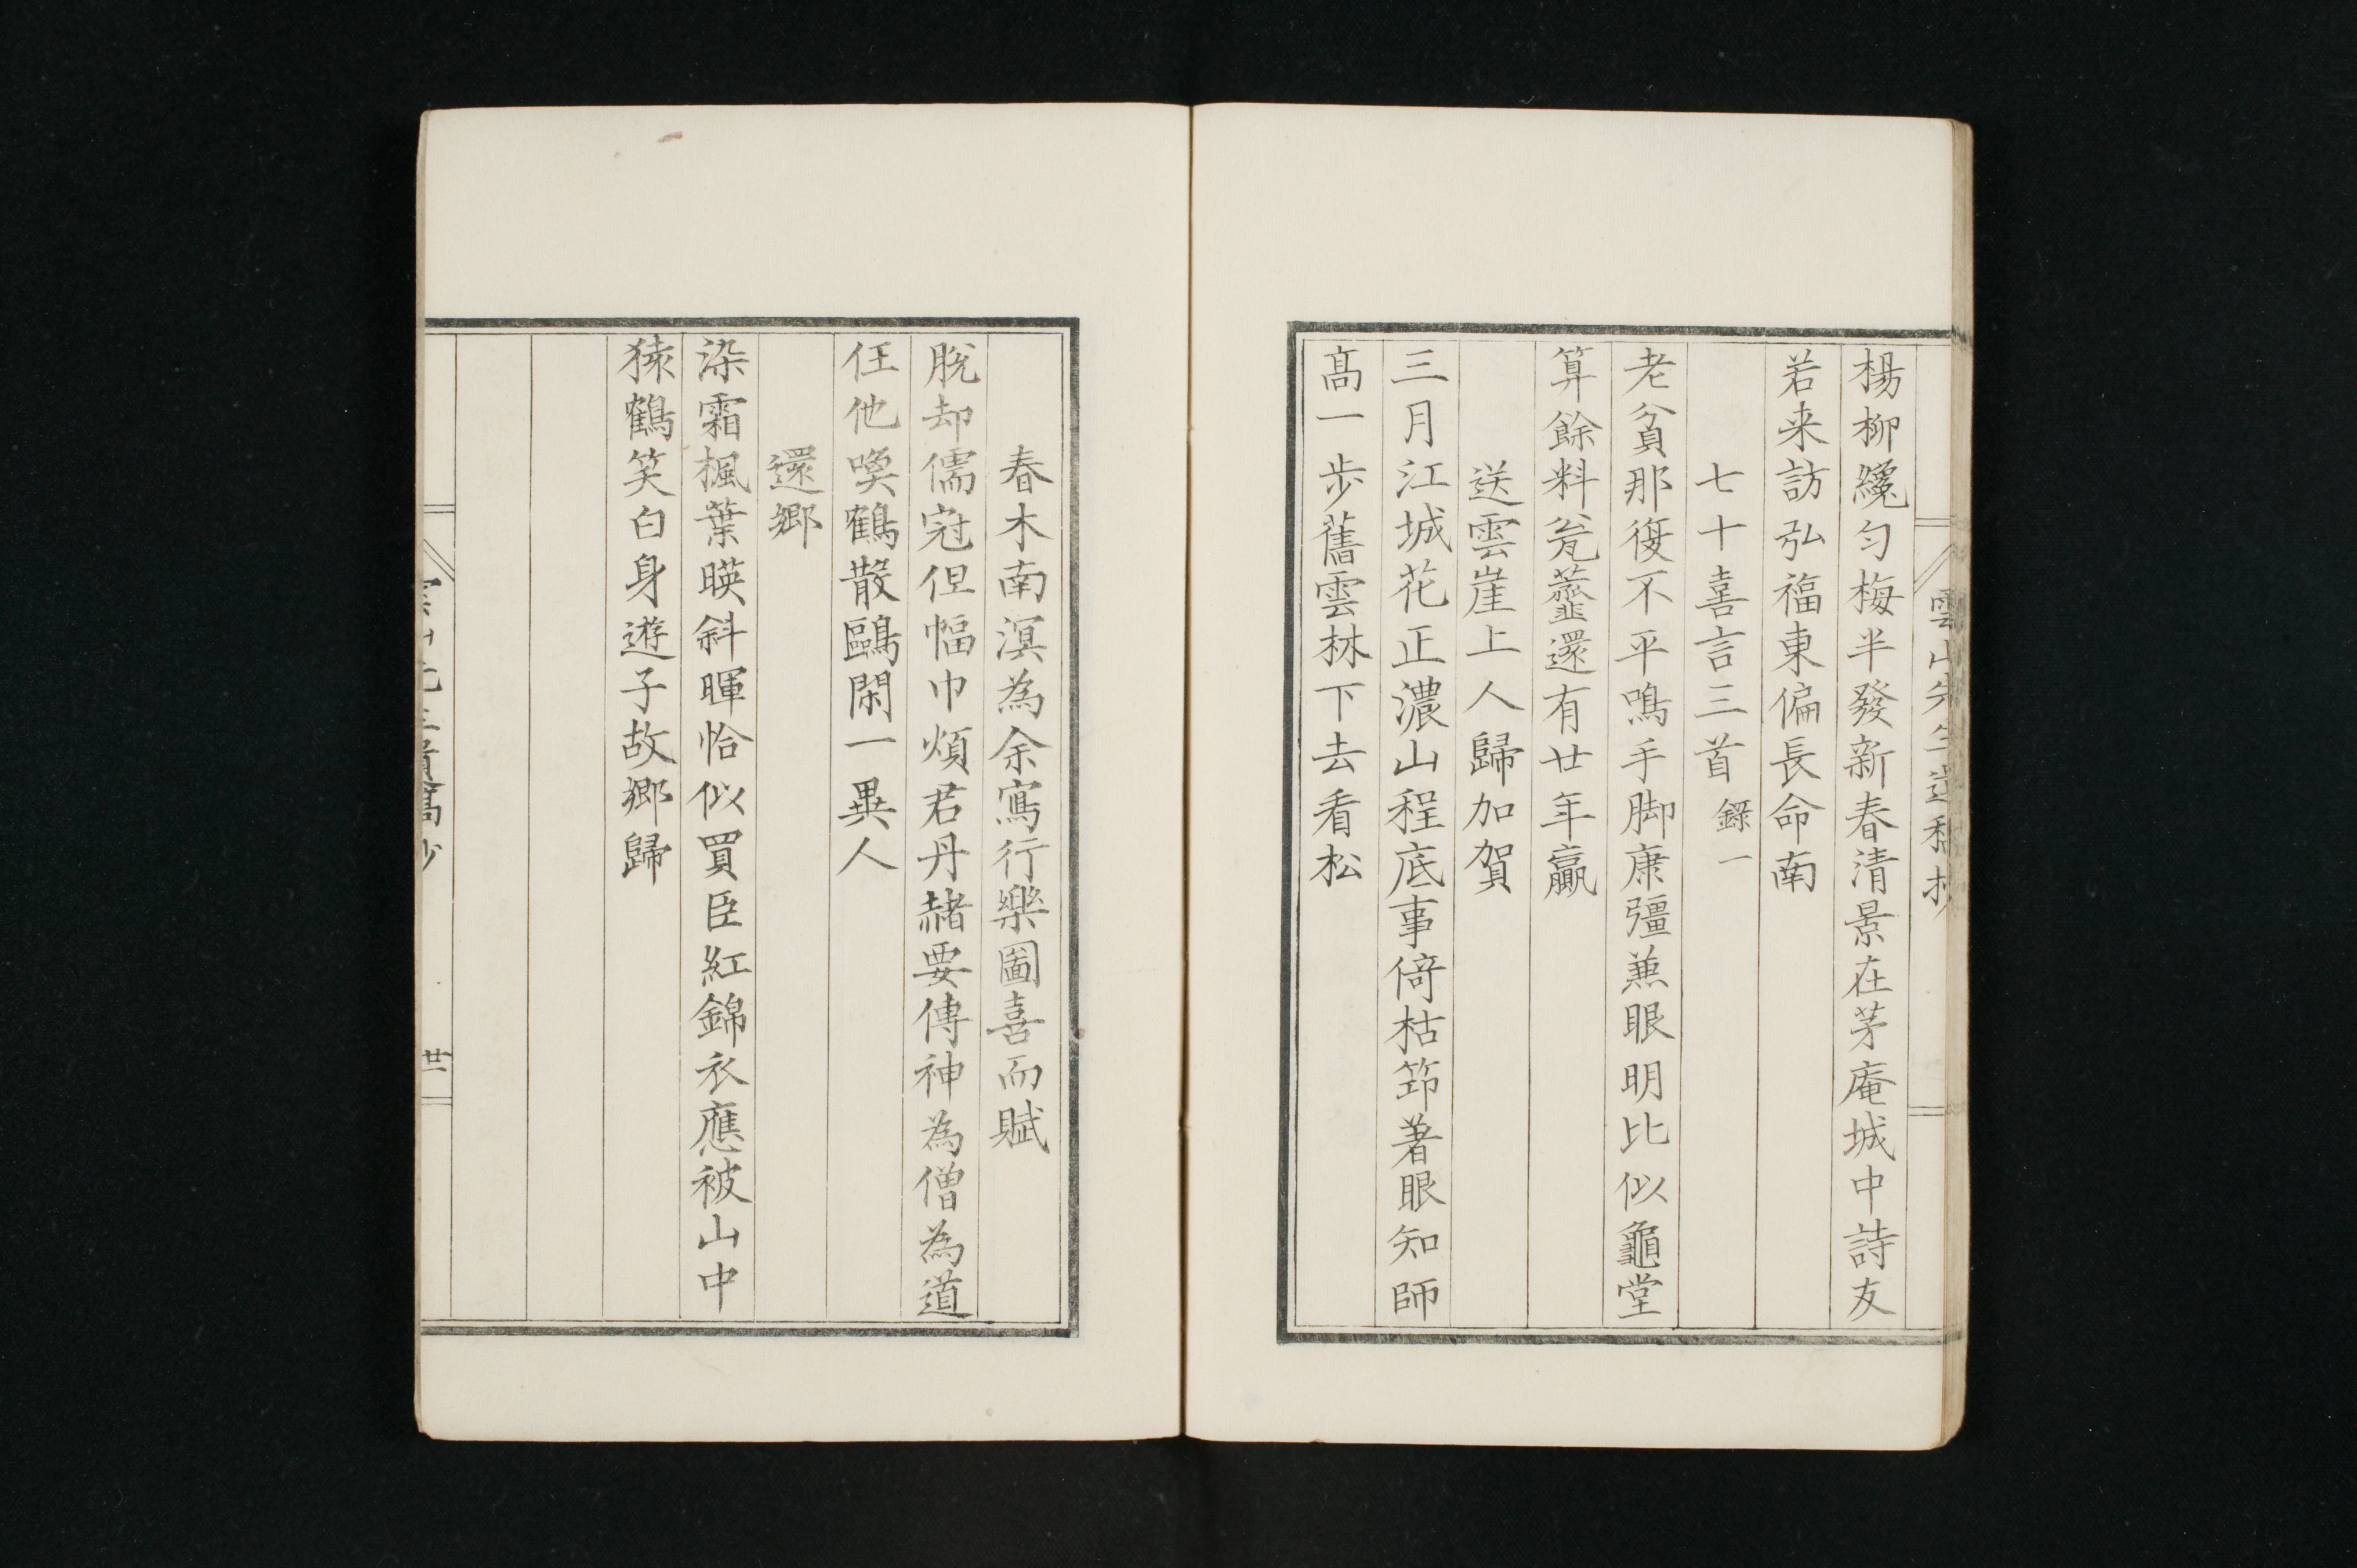 雲山先生遺稿抄
楊柳纔勻梅半發新春清景在茅庵城中詩友
若来訪弘福東偏長命南
七十喜言三首 錄一
老貧那復不平鳴手脚康彊兼眼明比似龜堂
算餘料瓮虀還有廿年贏
送雲崖上人歸加賀
三月江城花正濃山程底事倚枯笻著眼知師
高一步舊雲林下去看松
春木南溟為余寫行樂圖喜而賦
脫却儒冠但幅巾煩君丹赭要傳神為僧為道
任他喚鶴散鷗閑一異人
還鄉
染霜楓葉暎斜暉恰似買臣紅錦衣應被山中
猿鶴笑白身遊子故鄉歸
廿一